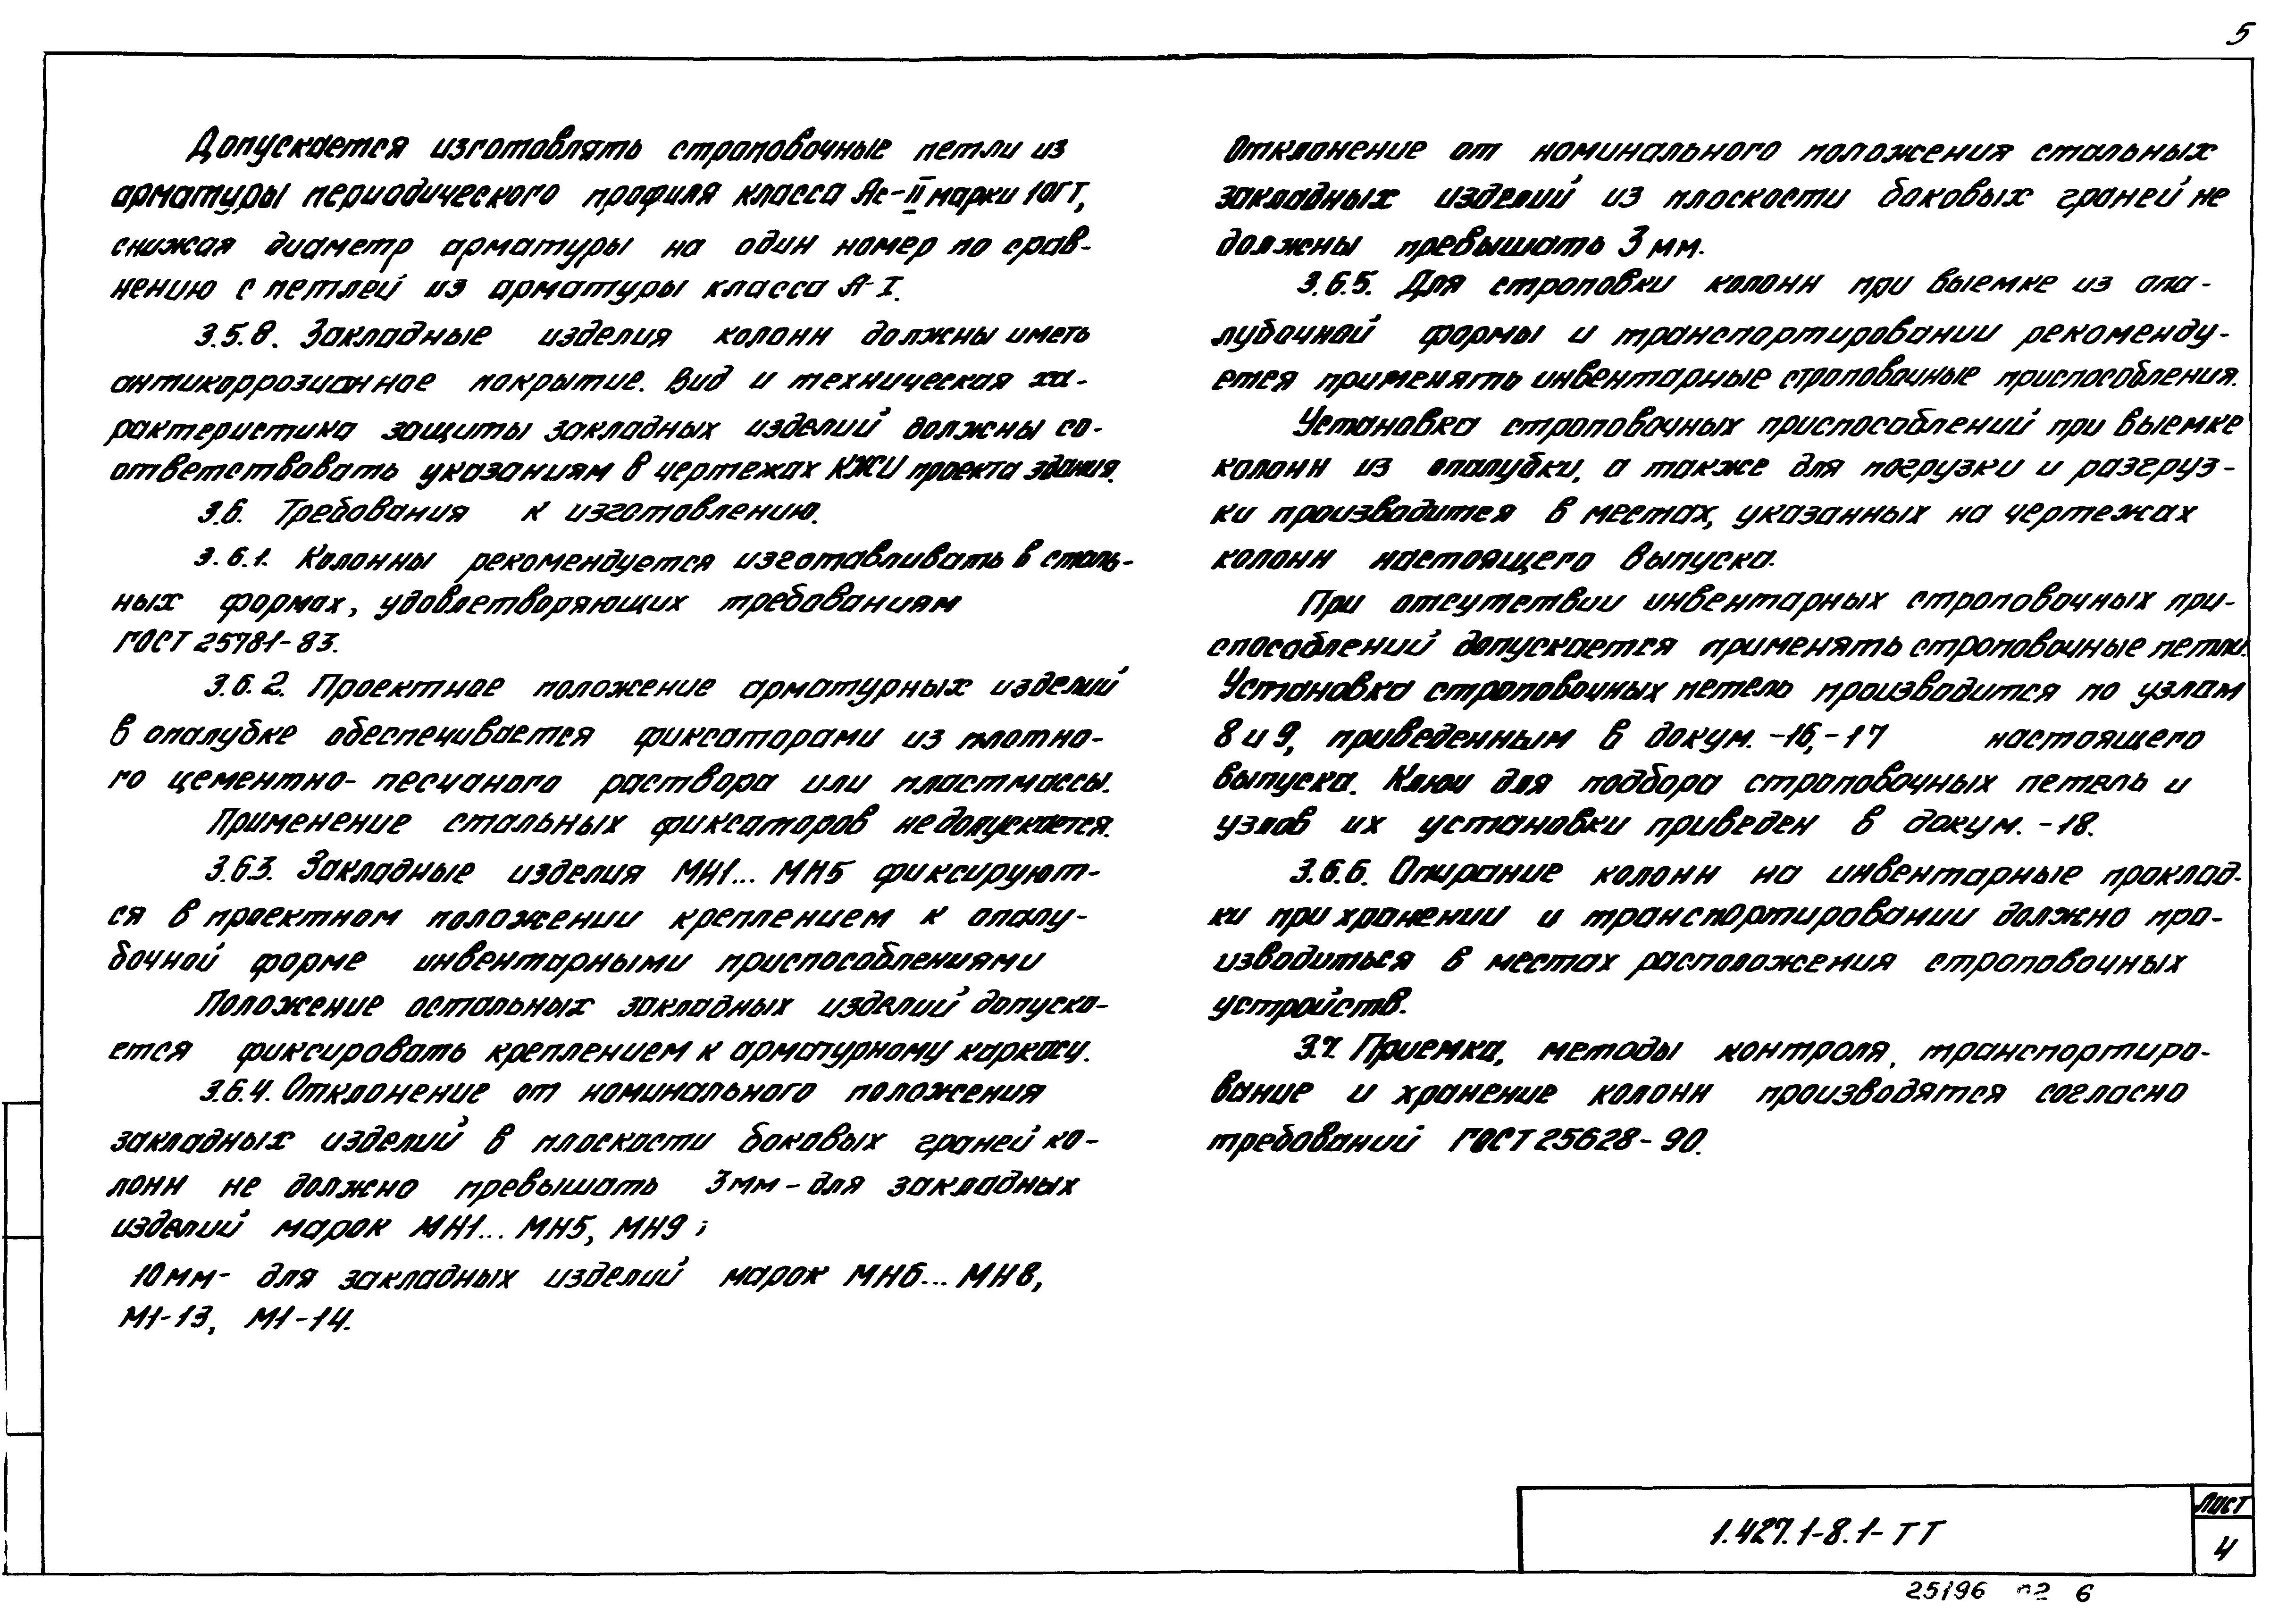 5
Допускается изготовлять строповочные петли из
арматуры периодического профиля класса Ас-II марки 10ГТ,
снижая диаметр арматуры на один номер по срав-
нению с петлей из арматуры класса А-I.
3.5.8. Закладные изделия колонн должны иметь
антикоррозионное покрытие. Вид и техническая ха-
рактеристика защиты закладных изделий должны со-
ответствовать указаниям в чертежах КЖИ проекта здания.
3.6. Требования к изготовлению.
3.6.1. Колонны рекомендуется изготавливать в сталь-
ных формах, удовлетворяющих требованиям
ГОСТ 25781-83.
3.6.2. Проектное положение арматурных изделий
в опалубке обеспечивается фиксаторами из плотно-
го цементно-песчаного раствора или пластмассы.
Применение стальных фиксаторов не допускается.
3.6.3. Закладные изделия МН1... МН5 фиксируют-
ся в проектном положении креплением к опалу-
бочной форме инвентарными приспособлениями
Положение остальных закладных изделий допуска-
ется фиксировать креплением к арматурному каркасу.
3.6.4. Отклонение от номинального положения
закладных изделий в плоскости боковых граней ко-
лонн не должно превышать 3мм - для закладных
изделий марок МН1... МН5, МН9;
10мм- для закладных изделий марок МН6... МН8,
М1-13, М1-14.
Отклонение от номинального положения стальных
закладных изделий из плоскости боковых граней не
должны превышать 3 мм.
3.6.5. Для строповки колонн при выемке из опа-
лубочной формы и транспортировании рекоменду-
ется применять инвентарные строповочные приспособления.
Установка строповочных приспособлений при выемке
колонн из опалубки, а также для погрузки и разгруз-
ки производится в местах, указанных на чертежах
колонн настоящего выпуска.
При отсутствии инвентарных строповочных при-
способлений допускается применять строповочные петли.
Установка строповочных петель производится по узлам
8 и 9, приведенным в докум. -16,-17 настоящего
выпуска. Ключ для подбора строповочных петель и
узлов их установки приведен в докум. -18.
3.6.6. Опирание колонн на инвентарные проклад-
ки при хранении и транспортировании должно про-
изводиться в местах расположения строповочных
устройств.
3.7. Приемка, методы контроля, транспортиро-
вание и хранение колонн производятся согласно
требований ГОСТ 25628-90.
1.427.1-8.1-ТТ
Лист
4
25196 02 6